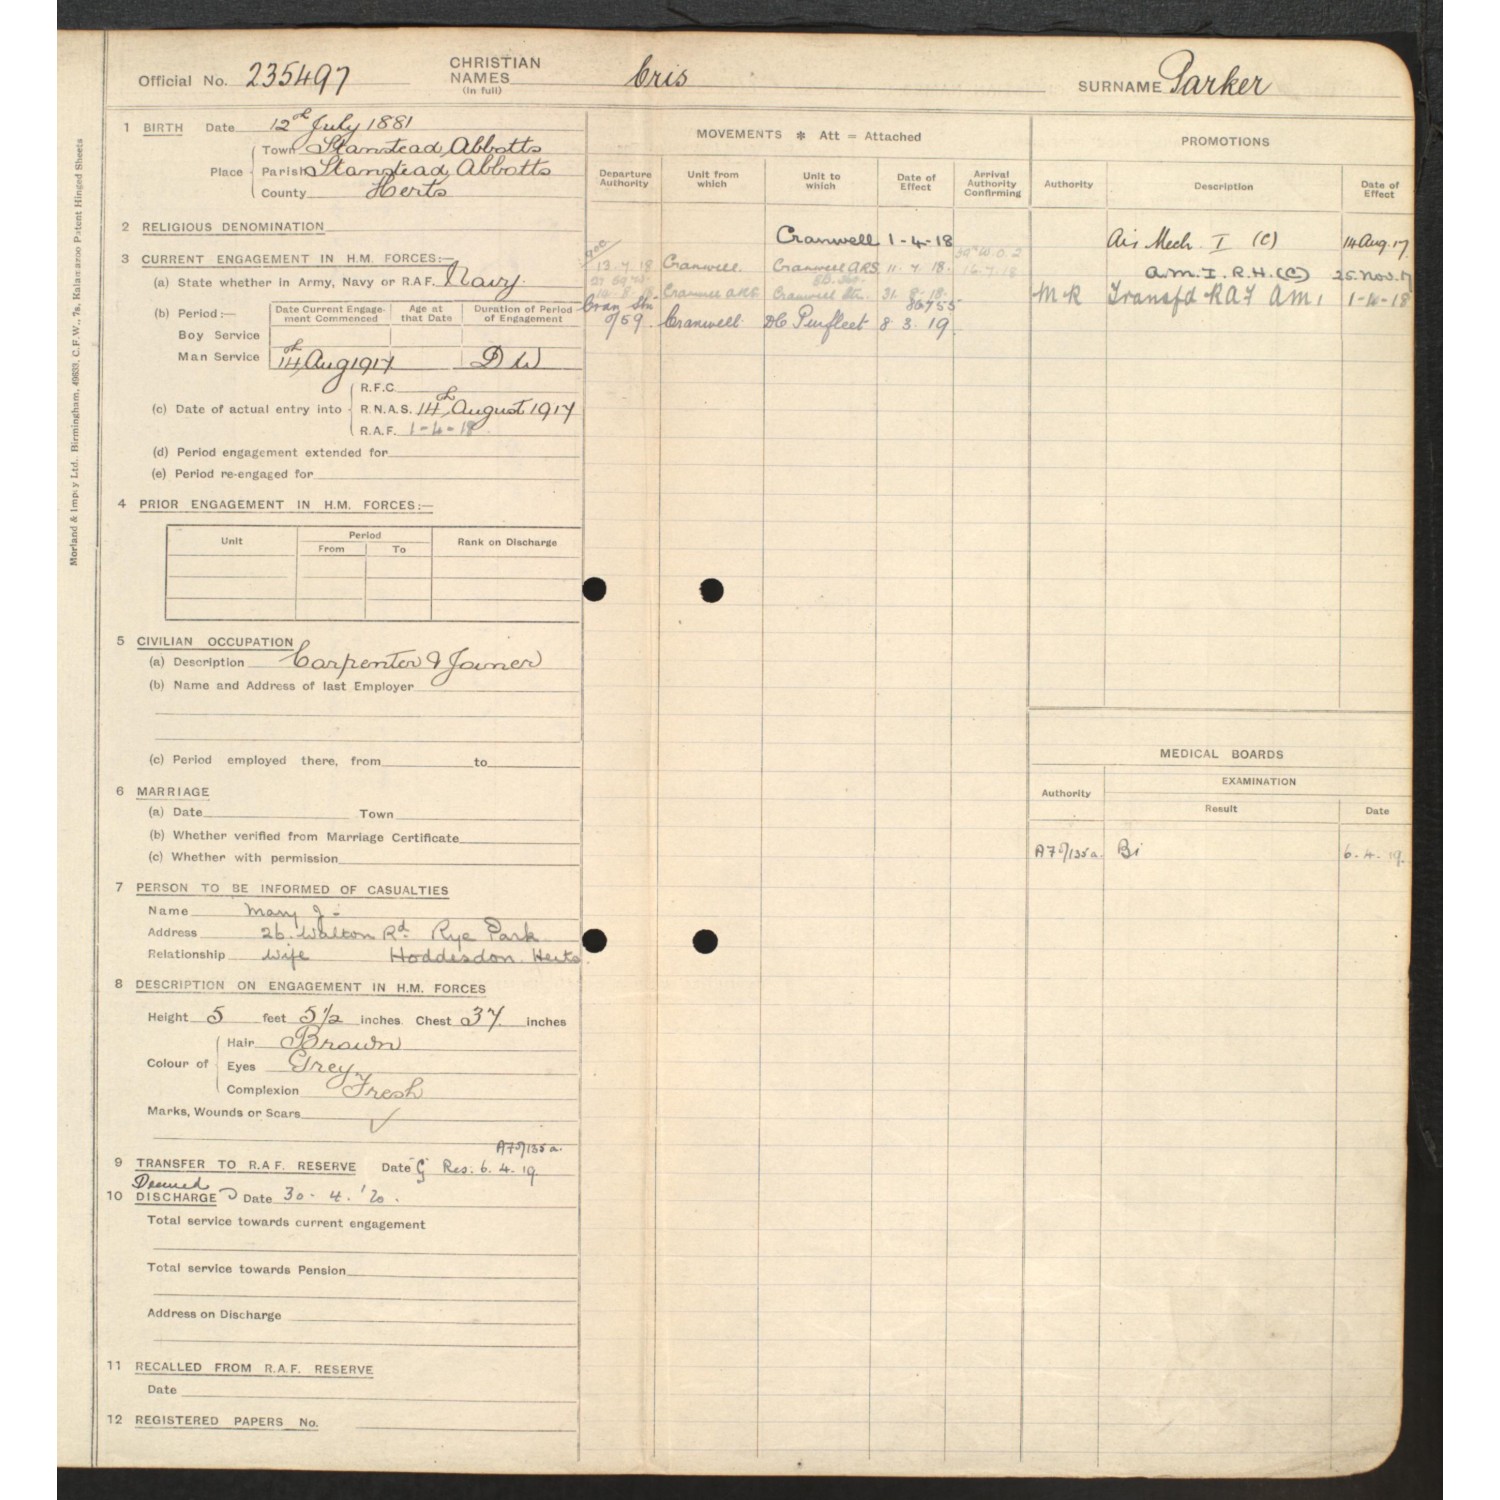 Official No. 235497 CHRISTIAN NAMES (in full) Cris SURNAME Parker
Morland & Impey Ltd. Birmingham, 49633, C.F.W., 7s, Kalamazoo Patent Hinged Sheets
1 BIRTH Date 12th July 1881
Town Stanstead Abbotts
Place Parish Stanstead Abbotts
County Herts
2 RELIGIOUS DENOMINATION
3 CURRENT ENGAGEMENT IN H.M. FORCES:—
(a) State whether in Army, Navy or R.A.F. Navy.
(b) Period:— Date Current Engagement Commenced Age at that Date Duration of Period of Engagement
Boy Service
Man Service 14th Aug 1917 D W
R.F.C.
(c) Date of actual entry into R.N.A.S. 14th August 1917
R.A.F. 1-4-18
(d) Period engagement extended for
(e) Period re-engaged for
4 PRIOR ENGAGEMENT IN H.M. FORCES:—
Unit Period Rank on Discharge
From To
5 CIVILIAN OCCUPATION
(a) Description Carpenter & Joiner
(b) Name and Address of last Employer
(c) Period employed there, from to
6 MARRIAGE
(a) Date Town
(b) Whether verified from Marriage Certificate
(c) Whether with permission
7 PERSON TO BE INFORMED OF CASUALTIES
Name Mary J-
Address 26. Walton Rd. Rye Park
Relationship Wife Hoddesdon. Herts
8 DESCRIPTION ON ENGAGEMENT IN H.M. FORCES
Height 5 feet 5½ inches Chest 37 inches
Hair Brown
Colour of Eyes Grey
Complexion Fresh
Marks, Wounds or Scars ✓
A70/135a.
9 TRANSFER TO R.A.F. RESERVE Date G Res: 6. 4. 19
Deemed
10 DISCHARGE Date 30. 4. '20.
Total service towards current engagement
Total service towards Pension
Address on Discharge
11 RECALLED FROM R.A.F. RESERVE
Date
12 REGISTERED PAPERS No.
MOVEMENTS * Att = Attached
Departure Authority Unit from which Unit to which Date of Effect Arrival Authority Confirming
Cranwell 1-4-18
13.7.18 Cranwell. Cranwell ARS 11.7.18. 16.7.18
Cranwell ARS Cranwell Stn. 31. 8-18.
Cran Stn 86755
0/59 Cranwell DC Purfleet 8. 3. 19.
PROMOTIONS
Authority Description Date of Effect
Air Mech. I (C) 14 Aug. 17.
A.M.I. R.H. (C) 25. Nov. 17
MR Transfd RAF AM1 1-4-18
MEDICAL BOARDS
Authority EXAMINATION
Result Date
A70/135a. Bi 6. 4. 19.